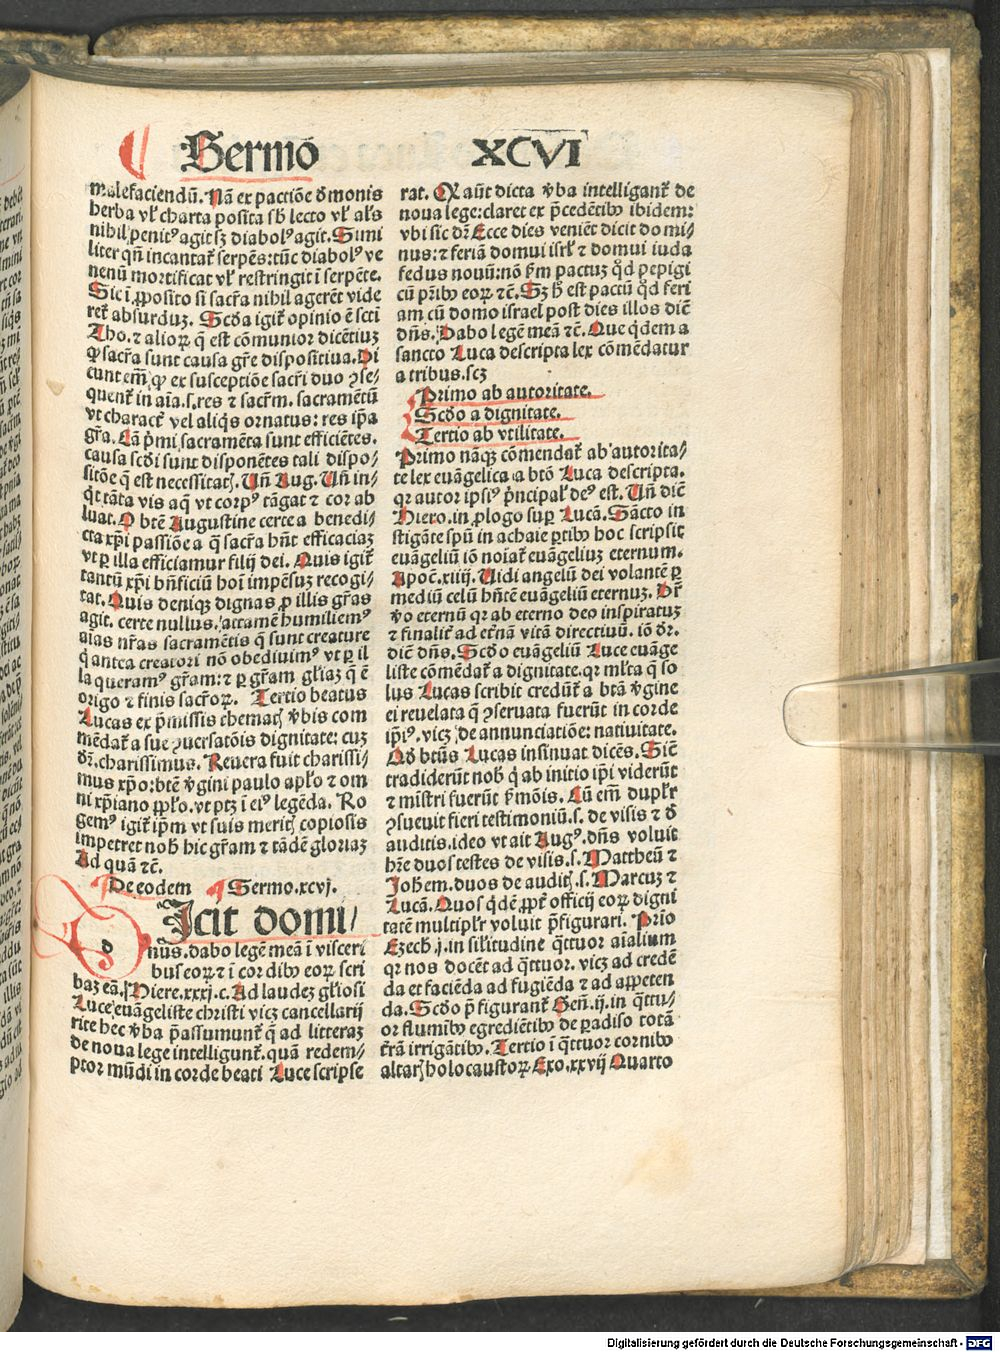 Sermo XCVI
malefaciendū. Nā ex pactiōe dꝰmonis
herba vl̕ charta posita sb̕ lecto vl̕ al̕s
nihil penitꝰ agit sꝫ diabolꝰ agit. Simi
liter qn̄ incantat̕ serpēs: tūc diabolꝰ ve
nenū mortificat vl̕ restringit ī serpēte.
Sic ī ꝓposito si sacr̄a nihil agerēt vide
ret̕ absurduꝫ. Scd̕a igit̕ opinio ē scti
Tho. ⁊ alioꝝ q̄ est cōmunior dicētiuꝫ
ꝙ sacr̄a sunt causa gr̄e dispositiua. Di
cunt em̄ ꝙ ex susceptiōe sacr̄i duo ꝯse⸗
quent̕ in aīa. s. res ⁊ sacr̄m. sacramētū
vt charact̕ vel aliqs ornatus: res ip̄a
gr̄a. Cā p̄mi sacramēta sunt efficiētes.
causa scd̕i sunt disponētes tali dispo⸗
sitōe q̄ est necessitatꝭ. Un̄ Aug. Un̄ in⸗
q̇t tāta vis aq̄ vt corpꝰ tāgat ⁊ cor ab
luat. O btē Augustine certe a benedi⸗
cta xp̄i passiōe a q̄ sacr̄a hn̄t efficaciaꝫ
vt ꝑ illa efficiamur filij dei. Quis igit̕
tantū xp̄i bn̄ficiū hoī impēsuꝫ recogi⸗
tat. Quis deniqꝫ dignas ꝓ illis gr̄as
agit. certe nullus. attamē humiliemꝰ
aīas nr̄as sacramētis q̄ sunt creature
q̇ antea creatori nō obediuimꝰ vt ꝑ il
la queramꝰ gr̄am: ⁊ ꝑ gr̄am gl̕iaꝫ q̄ ē
origo ⁊ finis sacr̄oꝝ. Tertio beatus
Lucas ex p̄missis thematꝭ v̕bis com
mēdat̕ a sue ꝯuersatōis dignitate: cuꝫ
dr̄. charissimus. Reuera fuit charissi⸗
mus xp̄o: btē v̕gini paulo apl̕o ⁊ om
ni xp̄iano ꝓpl̕o. vt ptꝫ ī eiꝰ legēda. Ro
gemꝰ igit̕ ip̄m vt suis meritꝭ copiosis
impetret nob̕ hic gr̄am ⁊ tādē gloriaꝫ
Ad quā ⁊c̄.
De eodem Sermo. xcvj.
dIcit domi⸗
nꝰ. dabo legē meā ī visceri
bus eoꝝ ⁊ ī cordibꝰ eoꝝ scri
baꝫ eā. Hiere. xxxj. c. Ad laudeꝫ gl̕iosi
Luce euāgeliste christi vicꝫ cancellarij
rite hec v̕ba p̄assumunt̕ q̄ ad litteraꝫ
de noua lege intelligunt̕. quā redem⸗
ptor mūdi in corde beati Luce scripse
rat. Q aūt dicta v̕ba intelligant̕ de
noua lege: claret ex p̄cedētibꝰ ibidem:
vbi sic dr̄ Ecce dies veniēt dicit domi⸗
nus: ⁊ feriā domui isrl̕ ⁊ domui iuda
fedus nouū: nō ẜm pactuꝫ qd̕ pepigi
cū pr̄ibꝰ eoꝝ ⁊c̄. Sꝫ h̕ est pactū qd̕ feri
am cū domo israel post dies illos diē
dn̄s. Dabo legē meā ⁊c̄. Que q̇dem a
sancto Luca descripta lex cōmēdatur
a tribus. scꝫ
Primo ab autoritate.
Scd̕o a dignitate.
Tertio ab vtilitate.
Primo nāqꝫ cōmendat̕ ab autorita⸗
te lex euāgelica a btō Luca descripta.
qr autor ipsiꝰ p̄ncipal̕ deꝰ est. Un̄ diē
Hiero. in ꝓlogo suꝑ Lucā. Sācto in
stigāte spū in achaie ꝑtibꝰ hoc scripsit
euāgeliū iō noīat̕ euāgeliuꝫ eternum.
Apoc̄. xiiij. Uidi angelū dei volantē ꝑ
mediū celū hn̄tē euāgeliū eternuꝫ. Dr̄
v̕o eternū qr ab eterno deo inspiratuꝫ
⁊ finalit̕ ad et̕nā vitā directiuū. iō dr̄.
diē dn̄s. Scd̕o euāgeliū Luce euāge
liste cōmēdat̕ a dignitate. qr ml̕ta q̄ so
lus Lucas scribit credūt̕ a btā v̕gine
ei reuelata q̄ ꝯseruata fuerūt in corde
ip̄iꝰ. vicꝫ de annunciatiōe: natiuitate.
Qd̕ btūs Lucas insinuat dicēs. Sic̄
tradiderūt nob̕ q̇ ab initio ip̄i viderūt
⁊ mīstri fuerūt ẜmōis. Cū em̄ dupl̕r
ꝯsueuit fieri testimoniū. s. de visis ⁊ d̕
auditis. ideo vt ait Augꝰ. dn̄s voluit
hr̄e duos testes de visis. s. Mattheū ⁊
Joh̕em. duos de auditꝭ. s. Marcuꝫ ⁊
Lucā. Quos q̇dē ꝓpt̕ officij eoꝝ digni
tatē multipl̕r voluit p̄figurari. Prīo
Ezech̕. j. in sil̕itudine q̇ttuor aīalium
qr nos docēt ad q̇ttuor. vicꝫ ad credē
da et faciēda ad fugiēda ⁊ ad appeten
da. Scd̕o p̄figurant̕ Gen̄. ij. in q̇ttu⸗
or flumībꝰ egrediētibꝰ de ꝑadiso totā
t̕rā irrigātibꝰ. Tertio ī q̇ttuor cornibꝰ
altarꝭ holocaustoꝝ. Exo. xxvij Quarto
Digitalisierung gefördert durch die Deutsche Forschungsgemeinschaft - DFG